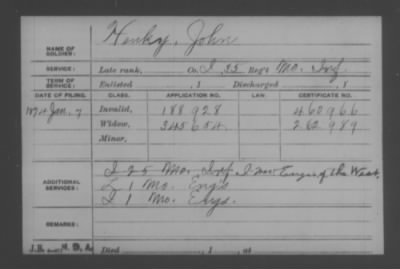 NAME OF SOLDIER: Henky, John
SERVICE: Late rank, Co. I 25 Reg't Mo. Inf
TERM OF SERVICE: Enlisted , 1 Discharged , 1
DATE OF FILING. CLASS. APPLICATION NO. LAW. CERTIFICATE NO.
1874 Jan. 7 Invalid, 188 928 460966
Widow, 345654 262 989
Minor,
ADDITIONAL SERVICES: I 25 Mo. Inf. of the West
1 Mo. Eng's
I 1 Mo. Engs.
REMARKS:
Died , 1 , at